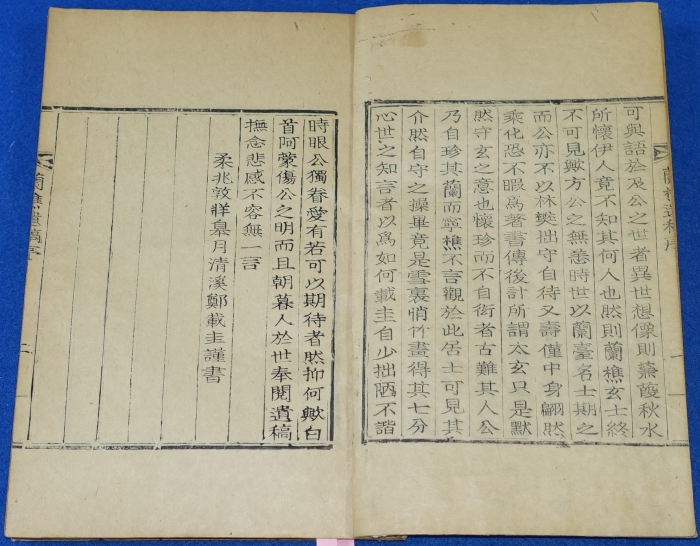 可與語於及公之世者異世想像則蒹葭秋水
所懷伊人竟不知其何人也然則蘭樵玄士終
不可見歟方公之無恙時世以蘭臺名士期之
而公亦不以林樊拙守自待又壽僅中身翩然
乘化恐不暇爲著書傳後計所謂太玄只是默
然守玄之意也懷珍而不自衒者古難其人公
乃自珍其蘭而寧樵不言觀於此居士可見其
介然自守之操畢竟是雪裏悄竹畫得其七分
心世之知言者以爲如何載圭自少拙陋不諧
時眼公獨眷愛有若可以期待者然抑何歟白
首阿蒙傷公之明而且朝暮人於世奉閱遺稿
撫念悲感不容無一言
柔兆敦牂皋月清溪鄭載圭謹書
蘭樵遺稿序
一
蘭樵遺稿序
二